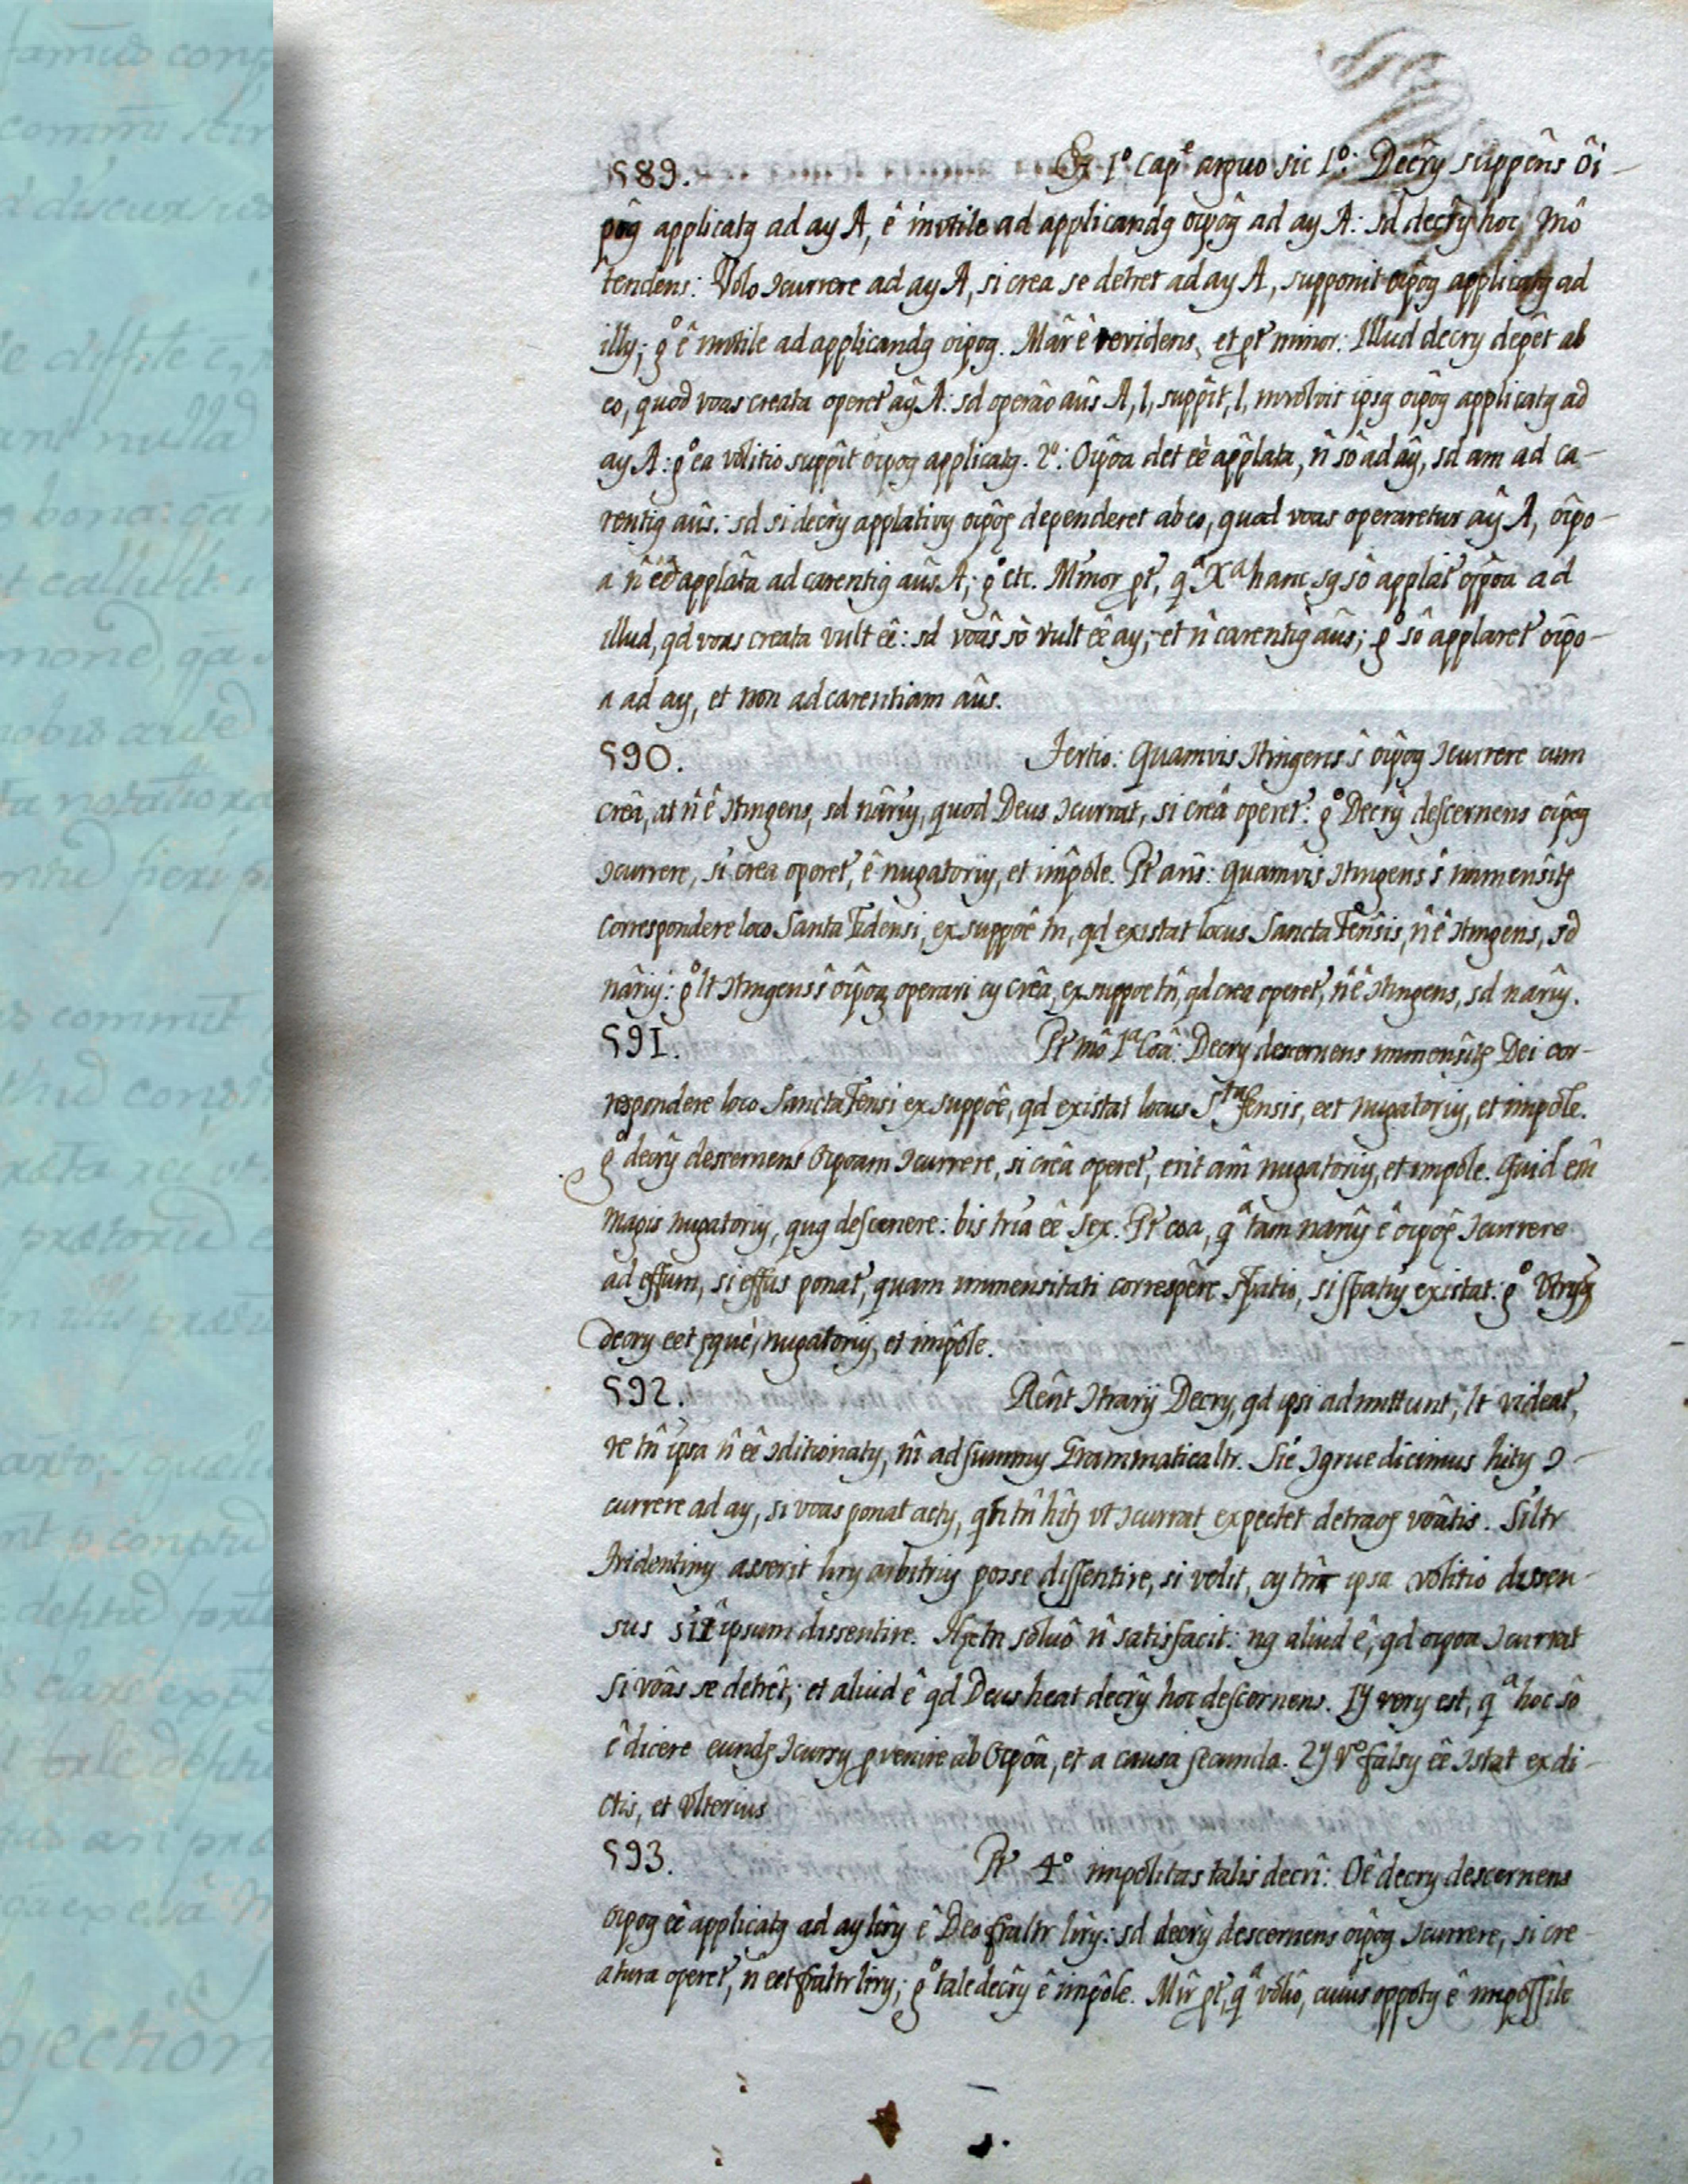 589. Ex 1º Cape arguo sic 1º: Decry suppens
applicatg ad ay A, ê inutile ad applicandg oipog ad ay A: sd decry hoc mô
tendens: Volo Icurrere ad ay A, si crea se detret ad ay A, supponit oipog applicatg ad
illy; gº ê inutile ad applicandg oipog. Mâr ê evidens, et pr minor: Illud decry depêt ab
eo, quod voas creata operet ay A: sd operaô aûs A, l, suppit, l, involvit ipsg oipog applicatg ad
ay A: gº ea volitio suppit oipog applicatg. 2º: Oipôa det eê applata, ñ sô ad ay, sd am ad ca-
rentig aûs: sd si decry applativy oipôe dependeret ab eo, quod voas operaretur ay A, oipo-
a ñ applata ad carentig aûs A; gº etc. Minor pr, qª hanc sô applat oipôa ad
illud, qd voas creata vult eê: sd voâs sô vult eê ay; et ñ carentig aûs; gº sô applaret oipo-
a ad ay, et non ad carentiam aûs.
590. Tertio: Quamvis Itingens ŝ oipog Icurrere cum
creâ, at ñ ê Itingens, sd nâriy, quod Deus Icurrat, si creâ operet: gº Decry descernens oipog
Icurrere, si crea operet, ê nugatoriy, et impôle. Pr ans: Quamvis Itingens ŝ immensite
correspondere loco Santa Fidensi, ex suppôe tn, qd existat locus Sancta Fensis, ñ ê Itingens, sd
nâriy: gº lt Itingens ŝ oipog operari cy creâ, ex suppoe tñ, qd crea operet, ñ ê Itingens, sd nâriy.
591. Pr mô 1ª Coâ: Decry descernens immensite Dei cor-
respondere loco Sancta Fensi ex suppôe, qd existat locus Sta fensis, eet nugatoriy, et impôle.
gº decry descernens Oipoam Icurrere, si creâ operet, erit am nugatoriy, et impôle. Quid enî
magis nugatoriy, qug descernere: bis tria eê sex. Pr coa, qª tam nariy ê oipoê Icurrere
ad effum, si effus ponat, quam immensitati correspêre spatio, si spatiy existat: gº Utryq
decry eet eque, nugatoriy, et impôle.
592. Rênt Itrarij Decry, qd ipsi admittunt, lt videat,
re tñ ipsa ñ eê Iditionaty, ni ad summy Grammaticaltr. Sic Igrue dicimus hity I-
currere ad ay, si voas ponat acty, qñ tñ vt Icurrat expectet voâtis. Siltr
Tridentiny asserit lîry arbitriy posse dissentire, si velit, cy tñ ipsa volitio dissen-
sus sit ipsum dissentire. soluô ñ satisfacit: ng aliud ê, qd oipoa Icurrat
si voâs se detrêt; et aliud ê qd Deus heat decry hoc descernens. 1y very est, qª hoc sô
ê dicere eundg Icursy pvenire ab Oipôa, et a causa secunda. 2y vº falsy eê Istat ex di-
ctis, et vlterius
593. Pr 4º impôlitas talis decri: Oê decry descernens
oipog eê applicatg ad ay lîry ê Deo fraltr lîry: sd decry descernens oipog Icurrere, si cre-
atura operet, ñ eet fraltr lîry; gº tale decry ê impôle. pr, qª volio, cuius oppoty ê impossîle